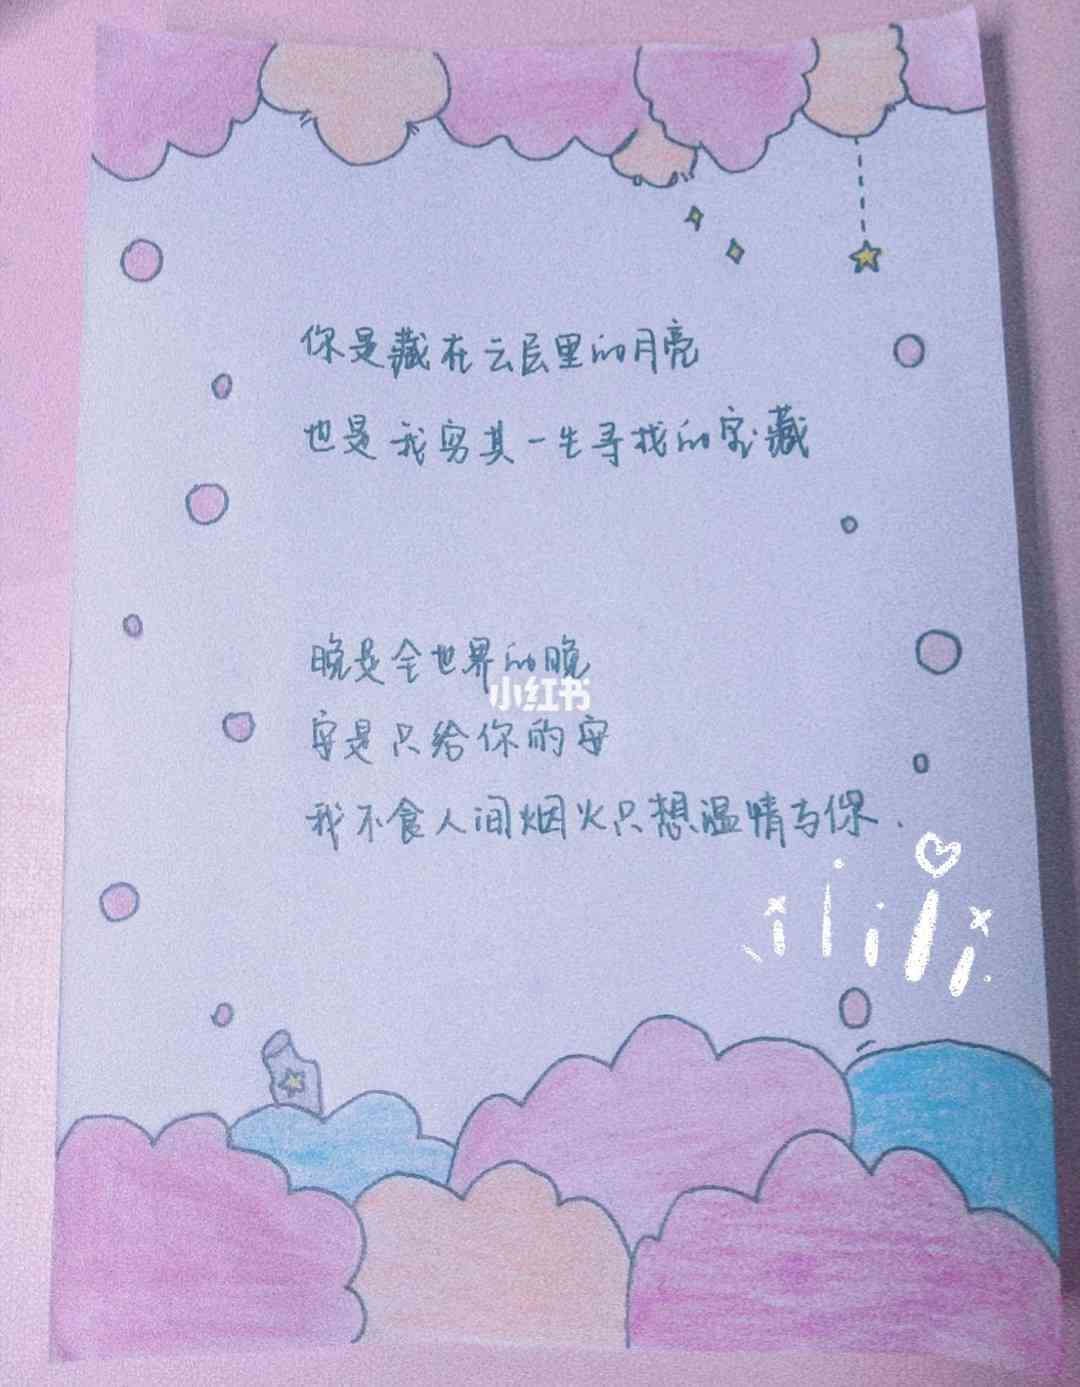 你是藏在云层里的月亮
也是我穷其一生寻找的宝藏
晚是全世界的晚
小红书
安是只给你的安
我不食人间烟火只想温情与你.